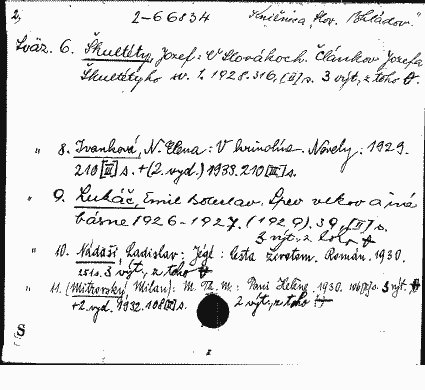 2, 2-66834 Knižnica „Slov. Pohľadov"
Sväz. 6. Škultéty, Jozef: V Slovákoch. Článkov Jozefa
Škultétyho sv. 1. 1928. 316, [II] s. 3 výt., z toho
" 8. Ivanková, N. Elena: V hrinôlus. Novely. 1929.
210 [III] s. + (2. vyd.) 1933. 210 [III] s.
" 9. Lukáč, Emil Boleslav. Spev vlkov a iné
básne 1926-1927. (1929). 39, [II] s.
3 výt., z toho
" 10. Nádaši, Ladislav: Jégé: Cesta životom. Román. 1930.
251 s. 3 výt., z toho
" 11. (Mitrovský, Milan): M. Th. M.: Pani Helène. 1930. 106 [II] s. 3 výt.
+ 2. vyd. 1932. 108 [II] s. 2 výt., z toho
S